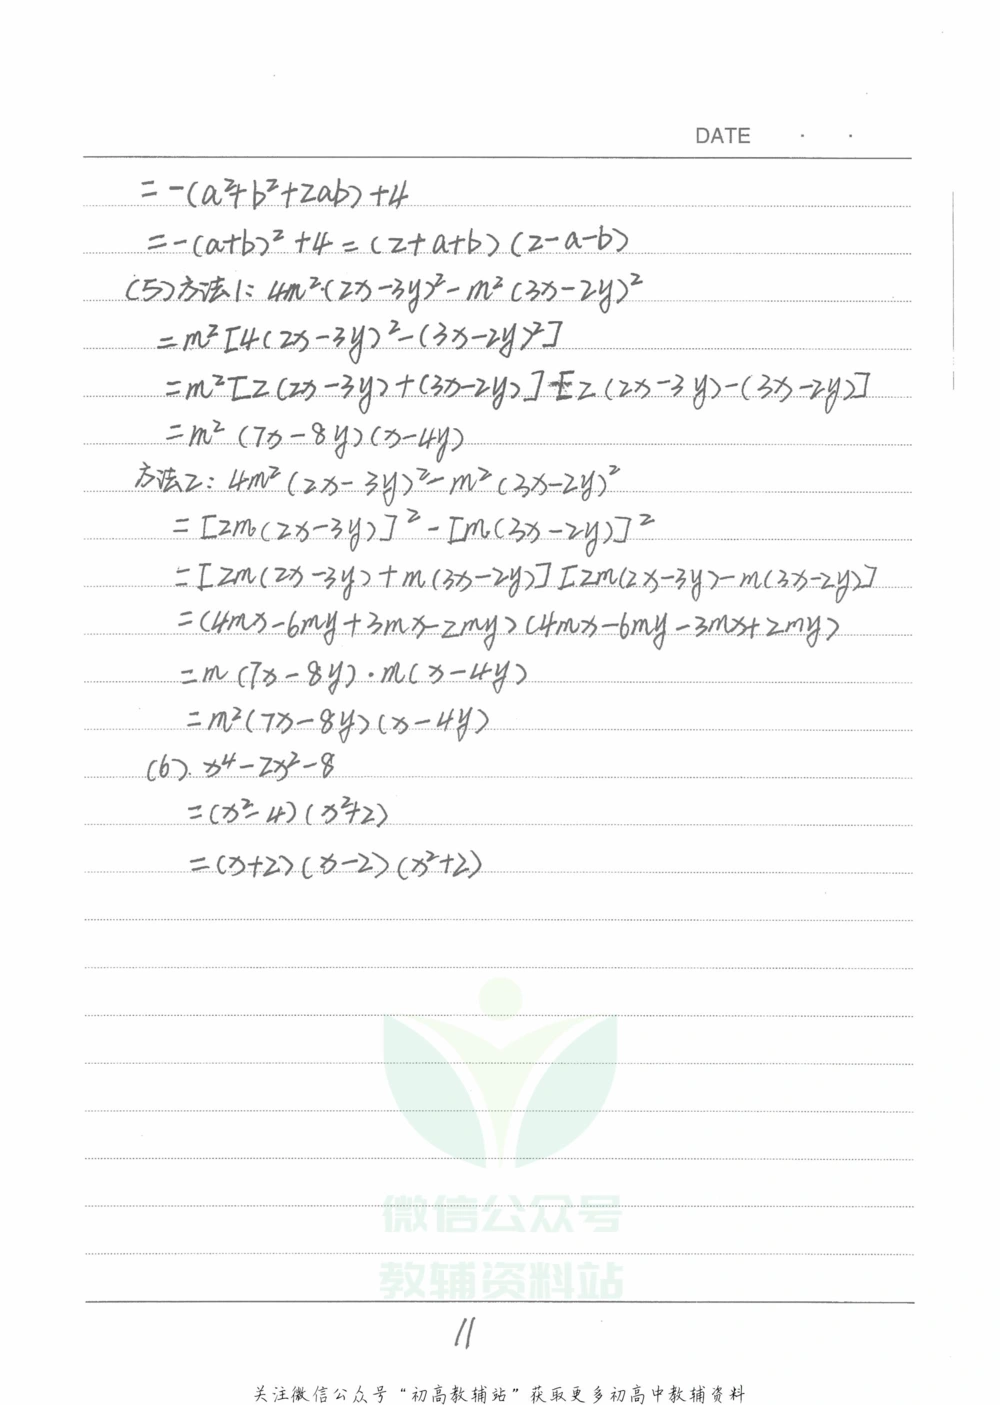 DATE · ·
=-(a²+b²+2ab)+4
=-(a+b)²+4=(2+a+b)(2-a-b)
(5)方法1: 4m²·(2x-3y)²-m²(3x-2y)²
=m²[4(2x-3y)²-(3x-2y)²]
=m²[2(2x-3y)+(3x-2y)]·[2(2x-3y)-(3x-2y)]
=m²(7x-8y)(x-4y)
方法2: 4m²(2x-3y)²-m²(3x-2y)²
=[2m(2x-3y)]²-[m(3x-2y)]²
=[2m(2x-3y)+m(3x-2y)][2m(2x-3y)-m(3x-2y)]
=(4mx-6my+3mx-2my)(4mx-6my-3mx+2my)
=m(7x-8y)·m(x-4y)
=m²(7x-8y)(x-4y)
(6). x⁴-2x²-8
=(x²-4)(x²+2)
=(x+2)(x-2)(x²+2)
微信公众号
教辅资料站
11
关注微信公众号“初高教辅站”获取更多初高中教辅资料